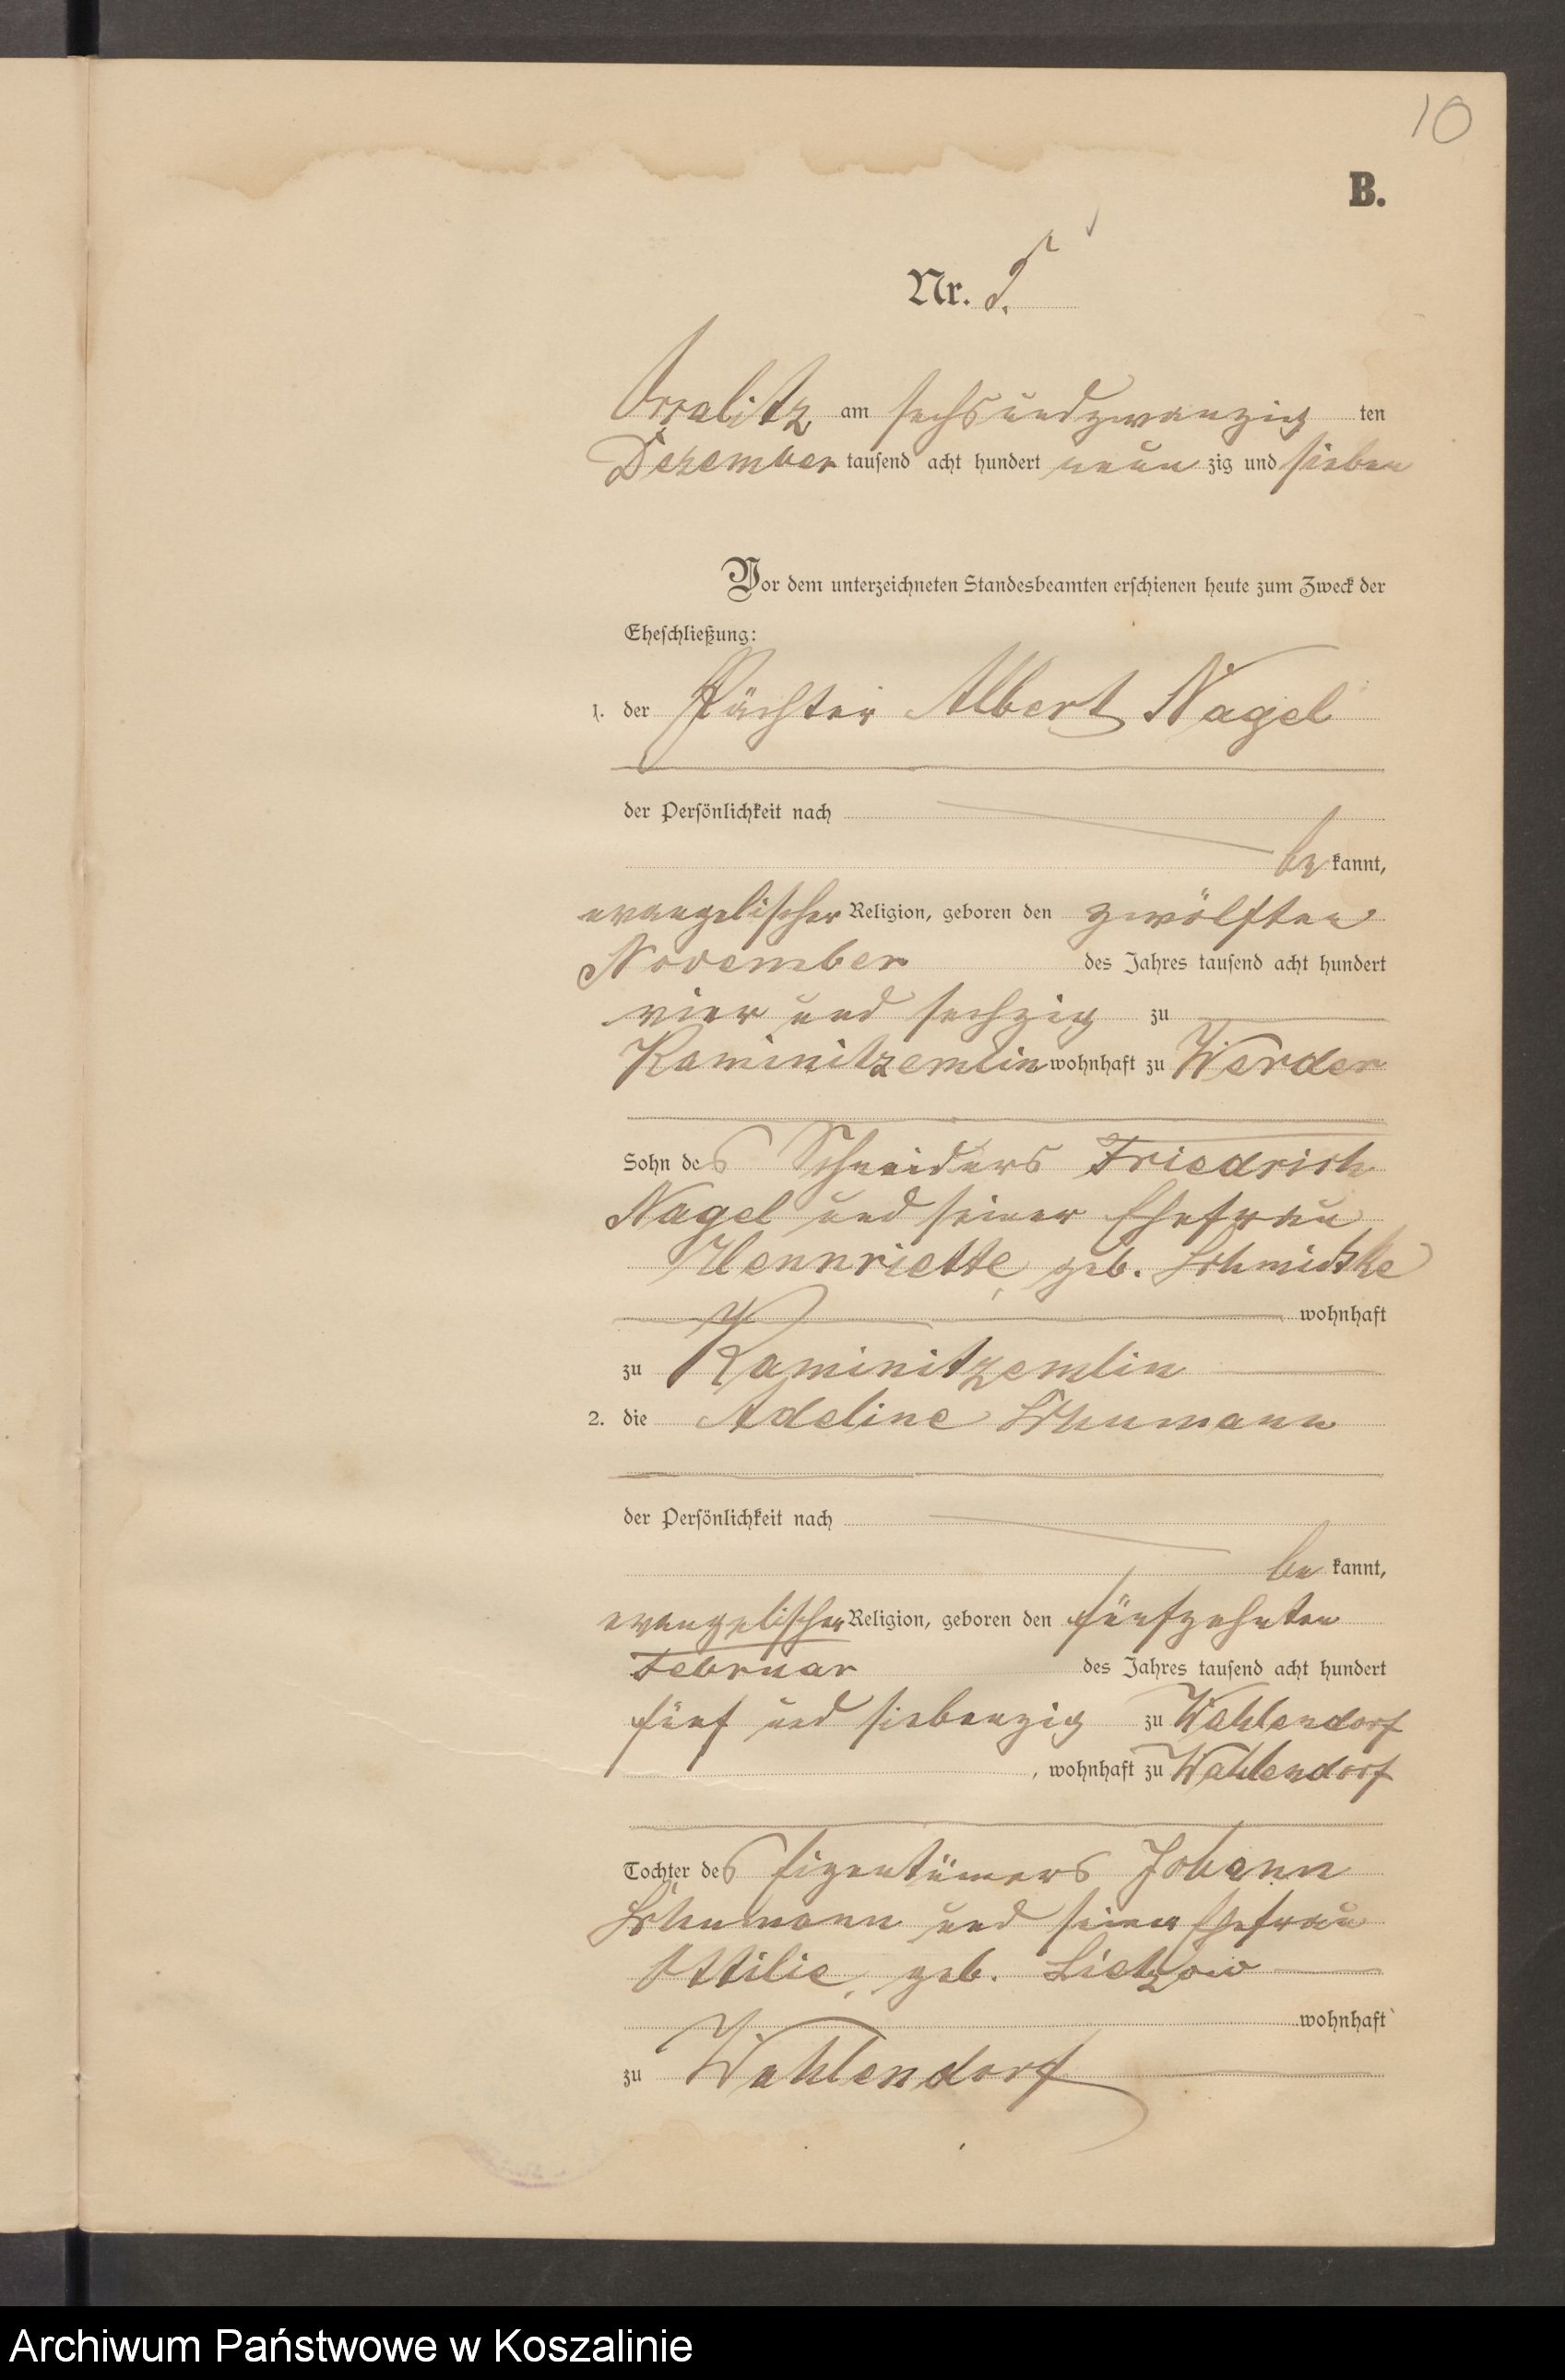 10
B.
Nr. 5.
am sechsundzwanzig ten
Dezember tausend acht hundert neun zig und sieben
Vor dem unterzeichneten Standesbeamten erschienen heute zum Zweck der
Eheschließung:
1. der Pächter Albert Nagel
der Persönlichkeit nach
be kannt,
evangelischer Religion, geboren den zwölften
November des Jahres tausend acht hundert
vier und sechzig zu
Kaminitzemlin wohnhaft zu Werder
Sohn des Schneiders Friedrich
Nagel und seiner Ehefrau
Hennriette, geb. Schmidtke
wohnhaft
zu Kaminitzemlin
2. die Adeline Schumann
der Persönlichkeit nach
be kannt,
evangelischer Religion, geboren den fünfzehnten
Februar des Jahres tausend acht hundert
fünf und siebenzig zu Wahlendorf
, wohnhaft zu Wahlendorf
Tochter des Eigentümers Johann
Schumann und seiner Ehefrau
Ottilie, geb. Lietzow
wohnhaft
zu Wahlendorf
Archiwum Państwowe w Koszalinie